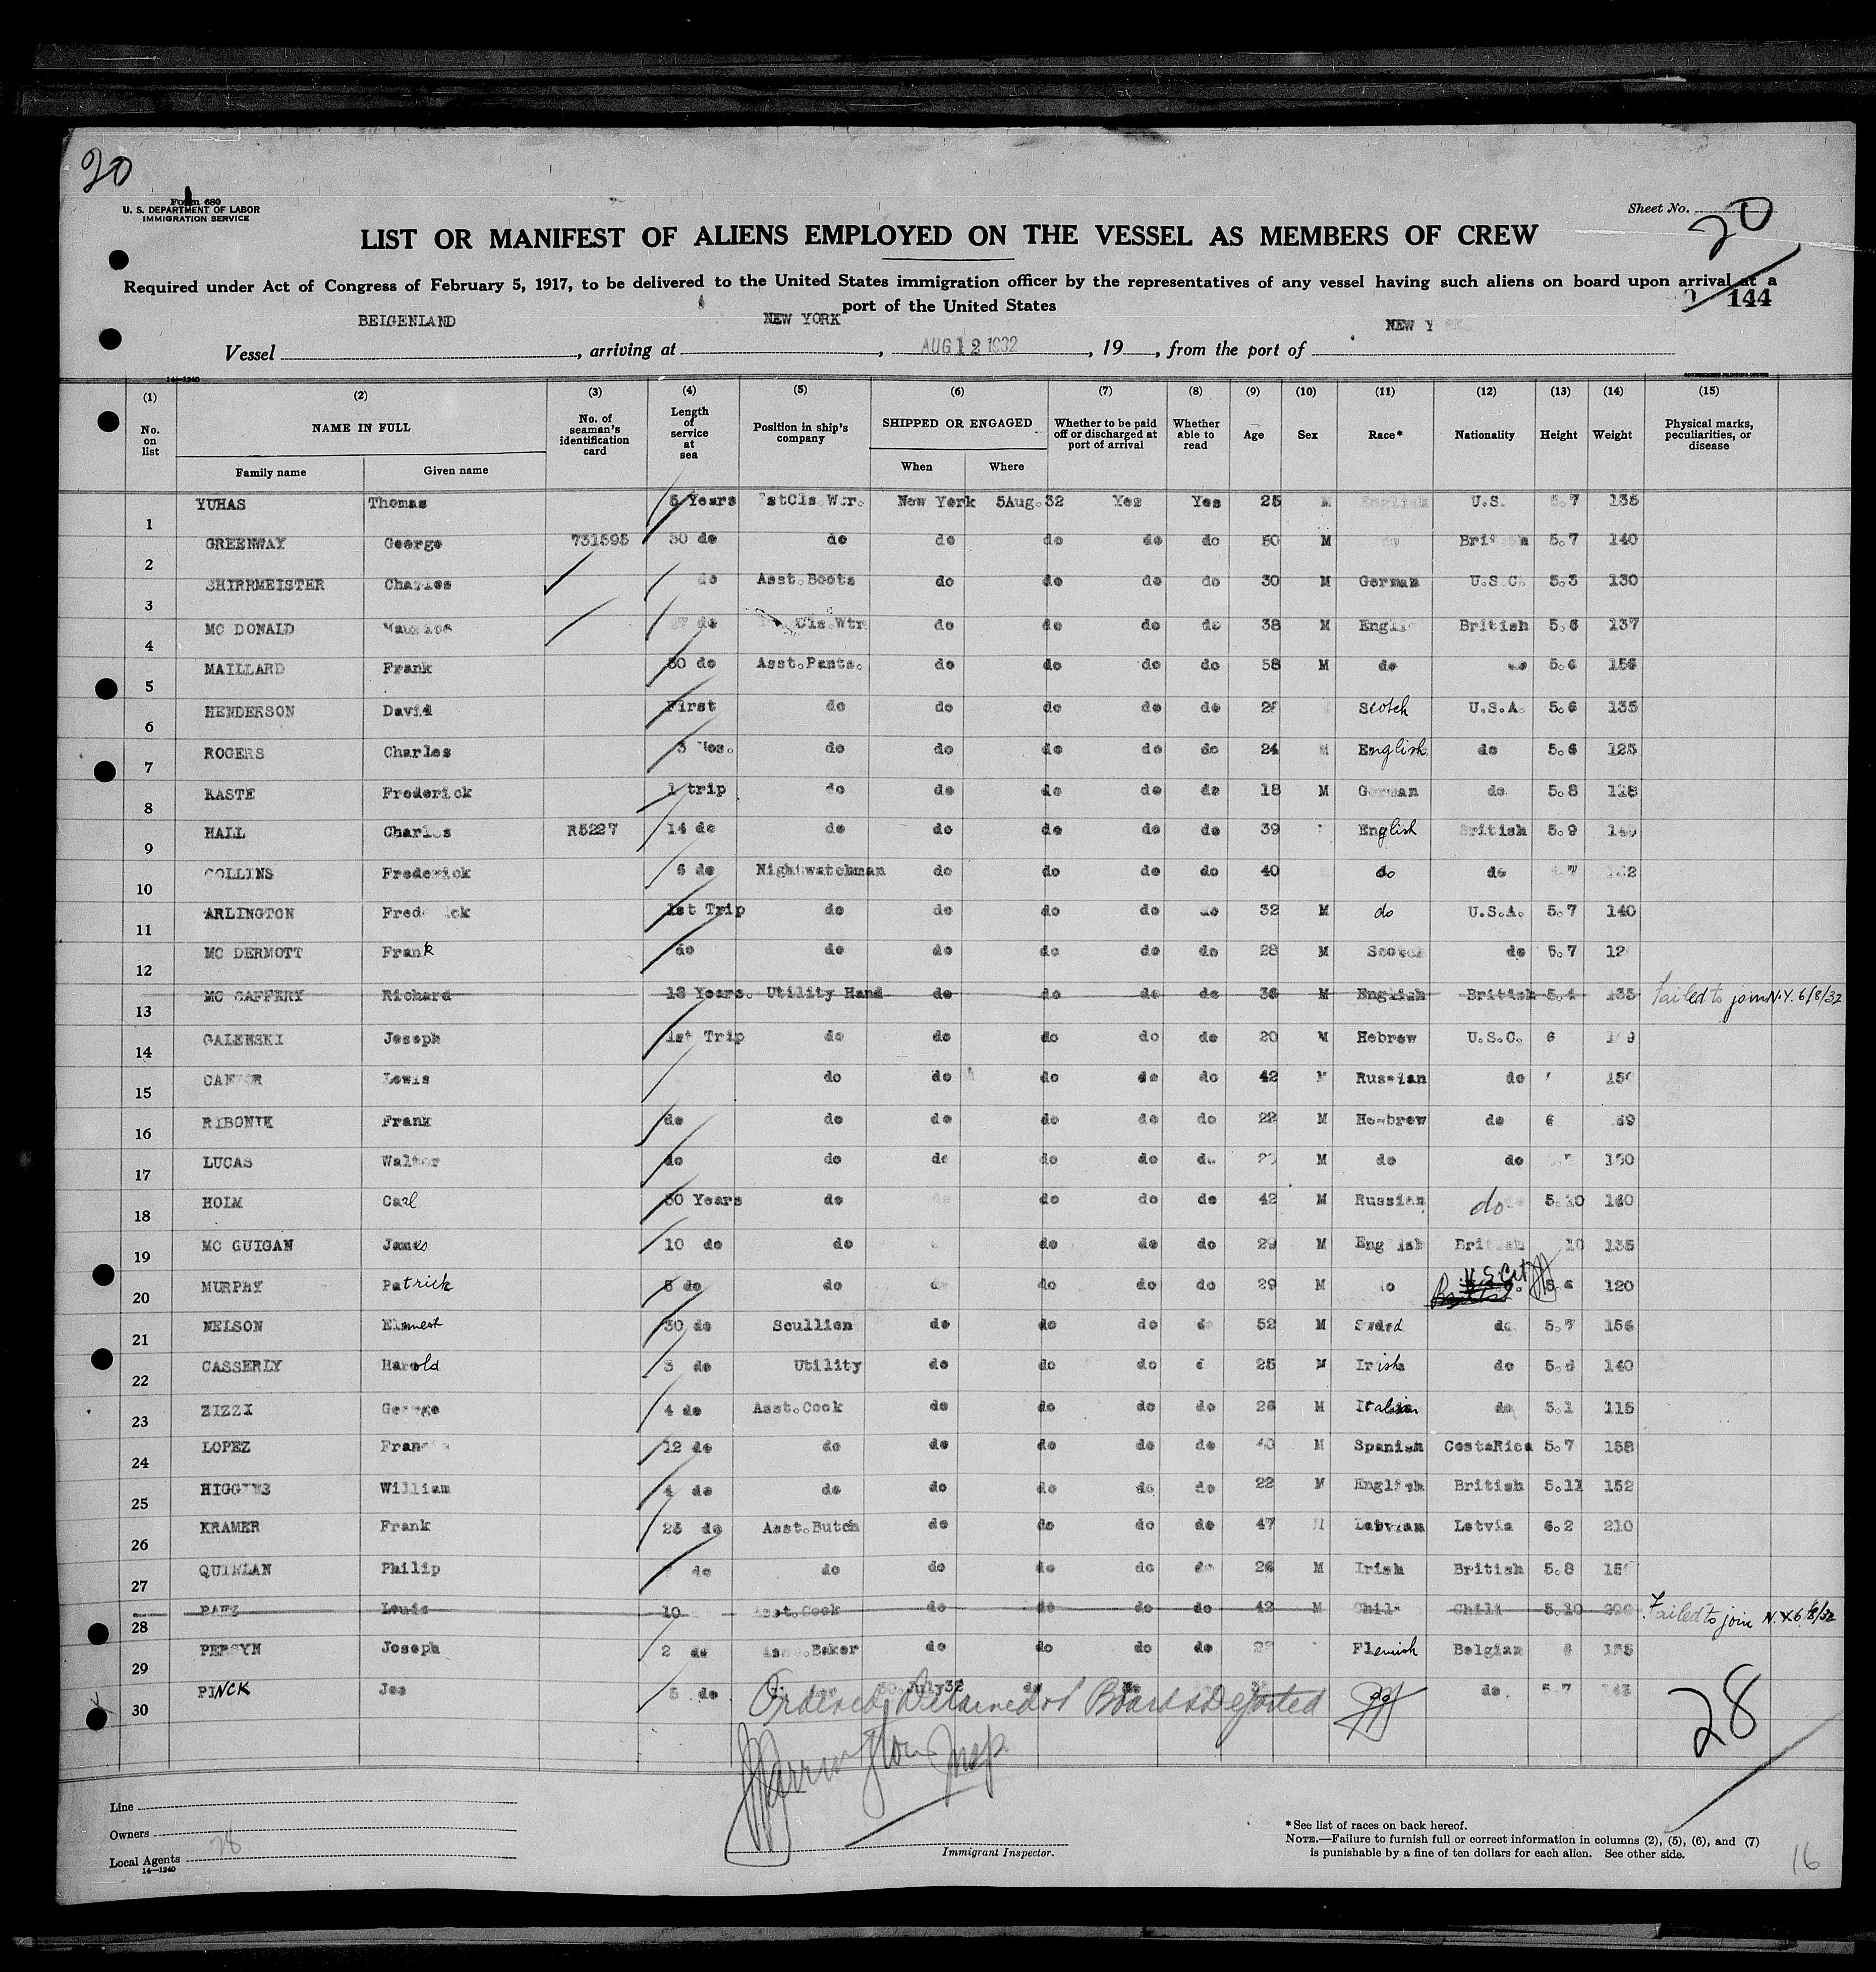 20
Form 680
U. S. DEPARTMENT OF LABOR
IMMIGRATION SERVICE
Sheet No. 20
LIST OR MANIFEST OF ALIENS EMPLOYED ON THE VESSEL AS MEMBERS OF CREW
Required under Act of Congress of February 5, 1917, to be delivered to the United States immigration officer by the representatives of any vessel having such aliens on board upon arrival at a
port of the United States
144
Vessel BELGENLAND, arriving at NEW YORK, AUG 12 1932, 19, from the port of NEW
14-1240
(1) (2) (3) (4) (5) (6) (7) (8) (9) (10) (11) (12) (13) (14) (15)
No. on list NAME IN FULL No. of seaman's identification card Length of service at sea Position in ship's company SHIPPED OR ENGAGED Whether to be paid off or discharged at port of arrival Whether able to read Age Sex Race* Nationality Height Weight Physical marks, peculiarities, or disease
Family name Given name When Where
1 YUHAS Thomas 5 Years Wtr. New York 5Aug.32 Yes Yes 25 M English U.S. 5.7 135
2 GREENWAY George 731595 30 do do do do do do 50 M do British 5.7 140
3 SHIRRMEISTER Charles do Asst.Boots do do do do 30 M German U.S.C. 5.3 130
4 MC DONALD Maurice do Cls.Wtr do do do do 38 M British 5.6 137
5 MAILLARD Frank 30 do Asst.Pants. do do do do 58 M do do 5.6 156
6 HENDERSON David First do do do do do Scotch U.S.A. 5.6 135
7 ROGERS Charles 3 Mos. do do do do do 24 M English do 5.6 125
8 KASTE Frederick 1 trip do do do do do 18 M German do 5.8 118
9 HALL Charles R5227 14 do do do do do do 39 English British 5.9
10 COLLINS Frederick 6 do Nightwatchman do do do do 40 do do
11 ARLINGTON Frederick 1st Trip do do do do do 32 M do U.S.A. 5.7 140
12 MC DERMOTT Frank do do do do do do 28 M Scotch do 5.7
13 MC CAFFERY Richard 18 Years. Utility Hand do do do do 36 M English British 5.4 135 Failed to join N.Y. 6/8/32
14 GALENSKI Joseph 1st Trip do do do do do 20 M Hebrew U.S.C. 6
15 CANTOR Lewis do do do do do 42 M Russian do
16 RIBONIK Frank do do do do do do 22 M Hebrew do 6
17 LUCAS Walter do do do do do do M do do 150
18 HOLM Carl 30 Years do do do do do 42 M Russian do 5.10 160
19 MC GUIGAN James 10 do do do do do 29 M English British 10 135
20 MURPHY Patrick 5 do do do do do do 29 M do U.S.Cit 5.6 120
21 NELSON 30 do Scullion do do do do 52 M do 5.7 156
22 CASSERLY Harold 3 do Utility do do do 25 M Irish do 5.6 140
23 ZIZZI George 4 do Asst.Cook do do do do 26 M Italian do 5.1 115
24 LOPEZ 12 do do do do do do M Spanish CostaRica 5.7 158
25 HIGGINS William 4 do do do do do do 22 M English British 5.11 152
26 KRAMER Frank 25 do Asst.Butch do do do do 47 M Latvian Letvia 6.2 210
27 QUINLAN Philip do do do do do do 26 M Irish British 5.8
28 PAEZ Louis 10 Asst.Cook do do do do 42 M Chili 5.10 Failed to join N.Y. 6/8/32
29 PERSYN Joseph 2 do Baker do do do do Flemish Belgian
30 PINCK Jos 5 do July32 do do do 5.7
Ordered Detained on Board & Deported
Harrington Insp.
28
Line
Owners
Local Agents
28
14-1240
Immigrant Inspector.
* See list of races on back hereof.
NOTE.—Failure to furnish full or correct information in columns (2), (5), (6), and (7)
is punishable by a fine of ten dollars for each alien. See other side.
16